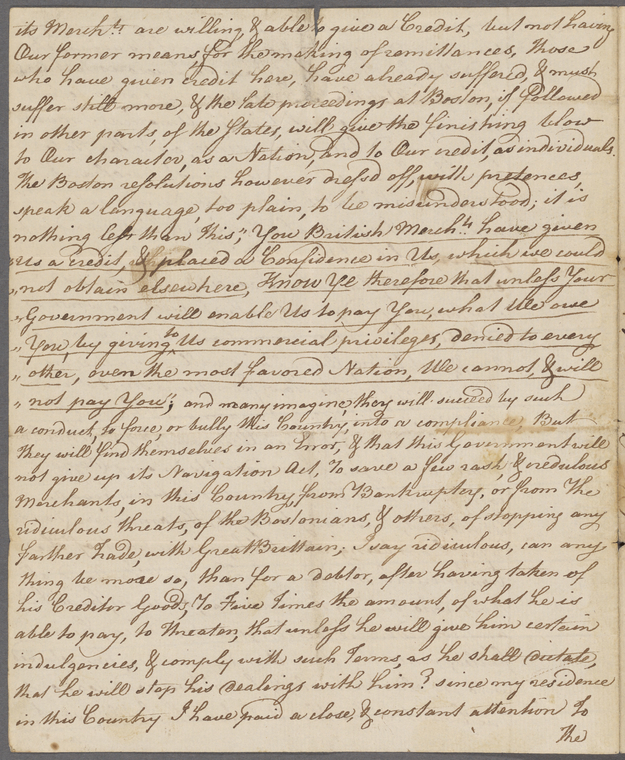 its Merchts are willing, & able to give a Credit, but not having
Our former means, for the making of remittances, those
who have given credit here, have already suffered, & must
suffer still more, & the late proceedings at Boston, if followed
in other parts, of the States, will give the finishing blow
to Our character, as a Nation, and to Our credit, as individuals.
The Boston resolutions however dress'd off, with pretences,
speak a language, too plain, to be misunderstood; it is
nothing less than this, "You British Merchts have given
"Us a credit, & placed a Confidence in Us, which we could
"not obtain elsewhere, Know Ye therefore that unless Your
"Government will enable Us to pay You, what We owe
"You, by giving to Us commercial privileges, denied to every
"other, even the most favored Nation, We cannot, & will
"not pay You"; and many imagine, they will succeed by such
a conduct, to force, or bully this Country, into a compliance, But
they will find themselves in an Error, & that this Government will
not give up its Navigation Act, To save a few rash, & credulous
Merchants, in this Country, from Bankruptcy, or from The
ridiculous threats, of the Bostonians, & others, of stopping any
farther Trade, with Great Brittain; I say ridiculous, can any
thing be more so, than for a debtor, after having taken of
his Creditor Goods, To Five Times the amount, of what he is
able to pay, to threaten, that unless he will give him certain
indulgencies, & comply with such Terms, as he shall dictate,
that he will stop his dealings with him? since my residence
in this Country I have paid a close, & constant attention To
The